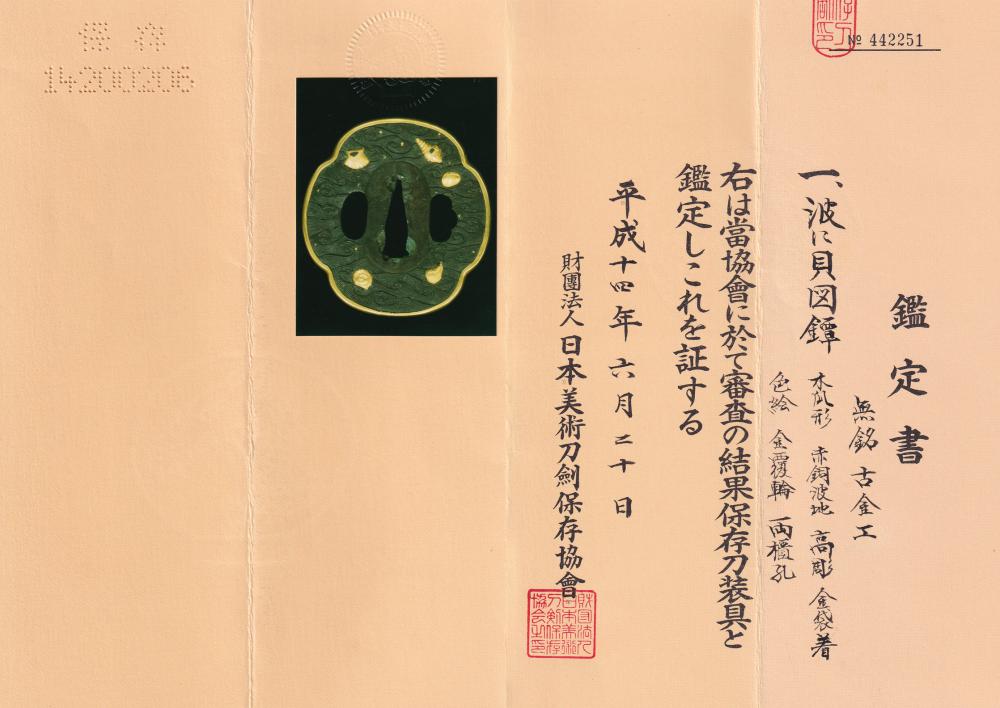 № 442251
鑑定書
無銘 古金工
一、波に貝図鐔 木瓜形 赤銅波地 高彫 金袋着
色絵 金覆輪 両櫃孔
右は當協會に於て審査の結果保存刀装具と
鑑定しこれを証する
平成十四年六月二十日
財團法人日本美術刀劍保存協會
財団法人
日本美術
刀剣保存
協会之印
保存
14200206